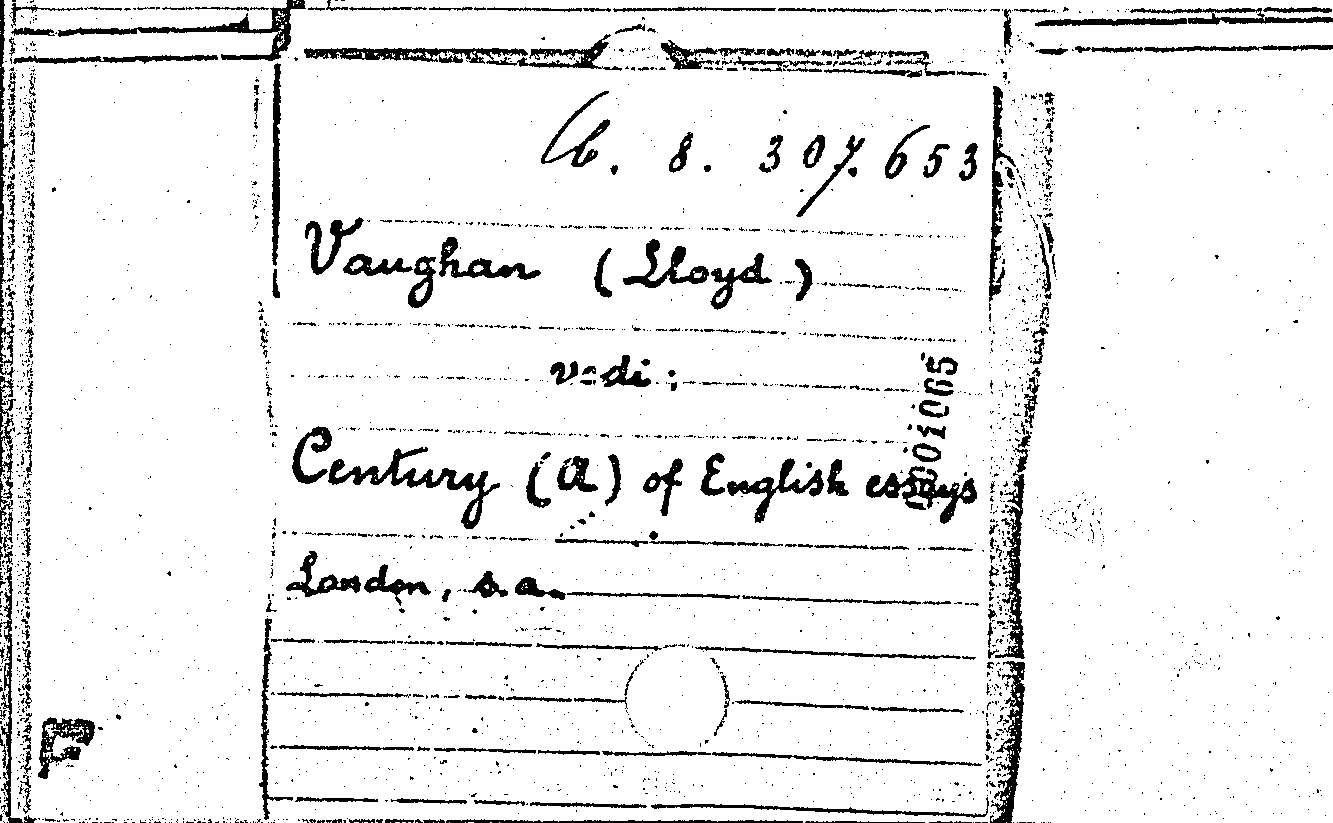 Cb. 8. 307.653
Vaughan (Lloyd)
vedi:
Century (A) of English essays
London, s.a.